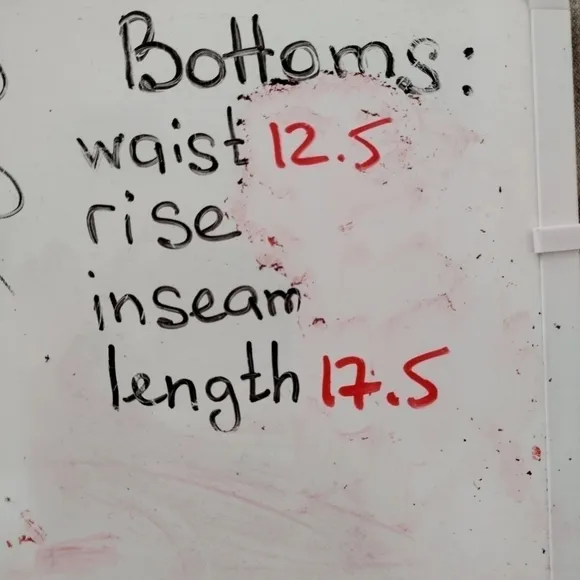 Bottoms:
waist 12.5
rise
inseam
length 17.5